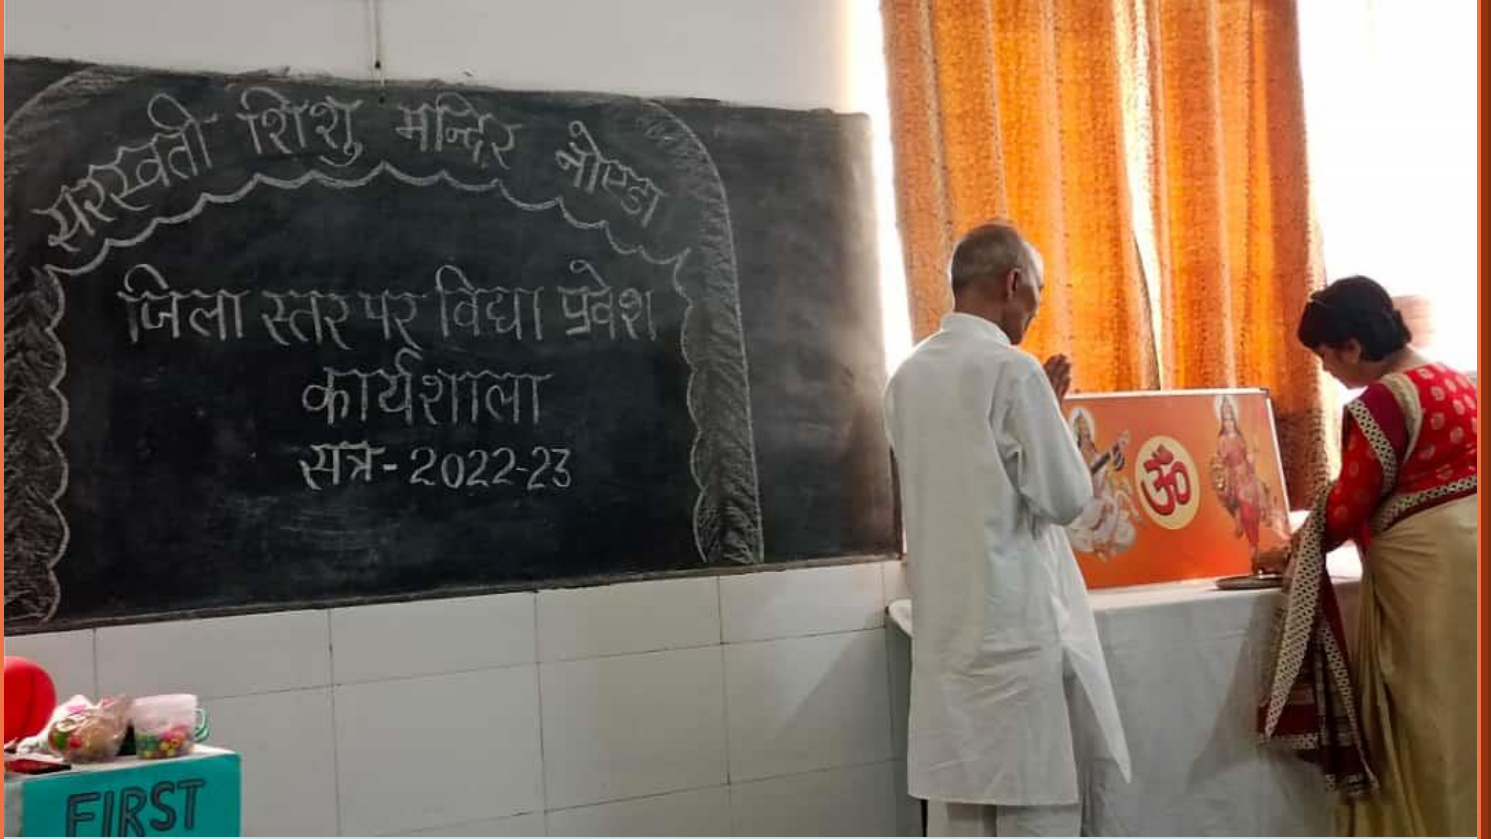 सरस्वती शिशु मन्दिर नोएडा
जिला स्तर पर विद्या प्रवेश
कार्यशाला
सत्र-2022-23
ॐ
FIRST